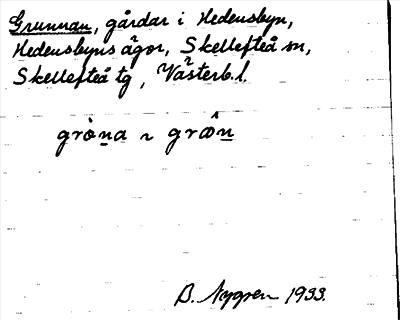 Grunnan, gårdar i Hedensbyn,
Hedensbyns ägor, Skellefteå sn,
Skellefteå tg, Västerb. l.
gròn̲a ~ græ̂n̲
B. Nygren 1933.